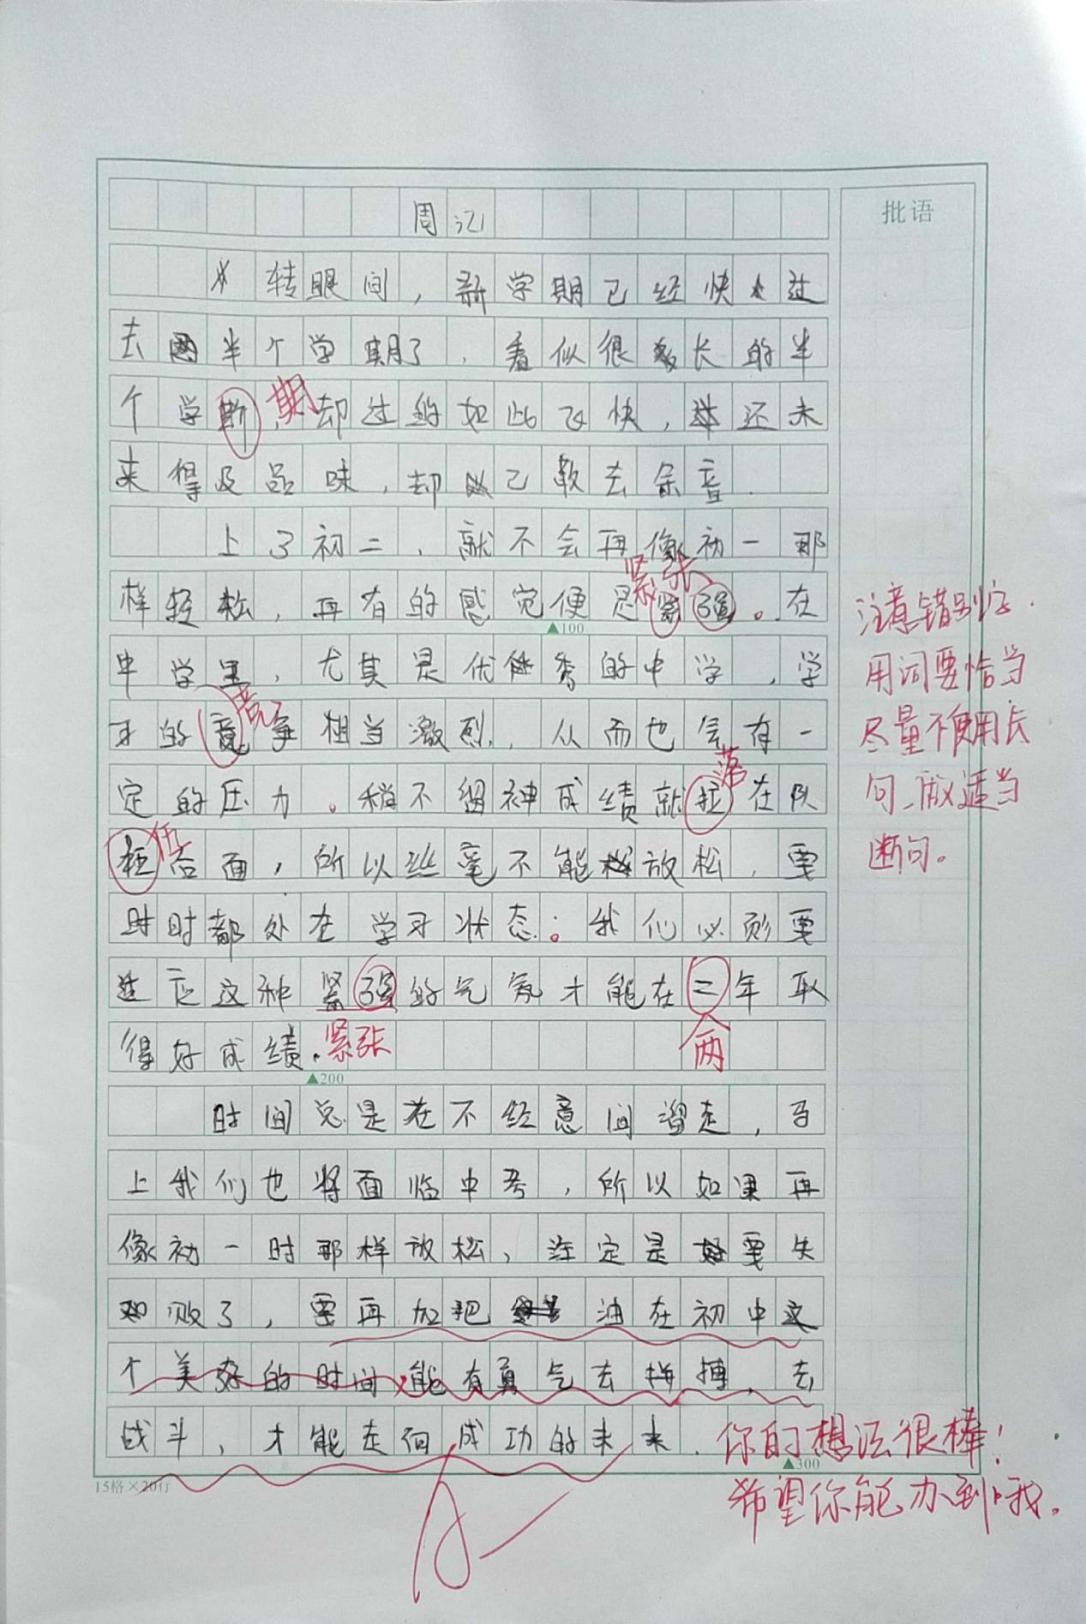 周记
批语
转眼间，新学期已经快过
去半个学期了，看似很长的半
个学期却过的如此飞快，还未
来得及品味，却已散去余音.
上了初二，就不会再像初一那
样轻松，再有的感觉便是紧强。在
紧张
中学里，尤其是优秀的中学，学
习的竟争相当激烈，从而也会有一
竞
定的压力。稍不留神成绩就拉在队
落
后面，所以丝毫不能放松，要
伍
时时都处在学习状态。我们必须要
适应这种紧强的气氛才能在二年取
得好成绩.
紧张
两
时间总是在不经意间溜走，马
上我们也将面临中考，所以如果再
像初一时那样放松，注定是要失
败了，要再加把油在初中这
个美好的时间，能有勇气去拼搏，去
战斗，才能走向成功的未来.
注意错别字.
用词要恰当
尽量不使用长
句，应适当
断句。
你的想法很棒！
希望你能办到哦。
A-
▲100
▲200
▲300
15格×20行